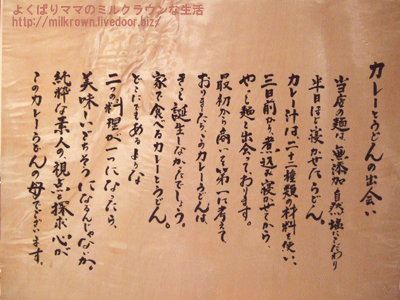 よくばりママのミルクラウンな生活
http://milkrown.livedoor.biz/
カレーとうどんの出会い
当店の麺は、無添加、自然塩にこだわり
半日ほど寝かせたうどん。
カレー汁は二十二種類の材料を使い、
三日前から煮込み寝かせてから、
やっと麺と出会っております。
最初から商いを第一に考えて
おりましたら、このカレーうどんは、
きっと誕生しなかったでしょう。
家で食べるカレーとうどん。
どこにでもあるような
二つの料理が一つになったら、
美味しいごちそうになるんじゃないか。
純粋な素人の視点と探求心が
このカレーうどんの母でございます。